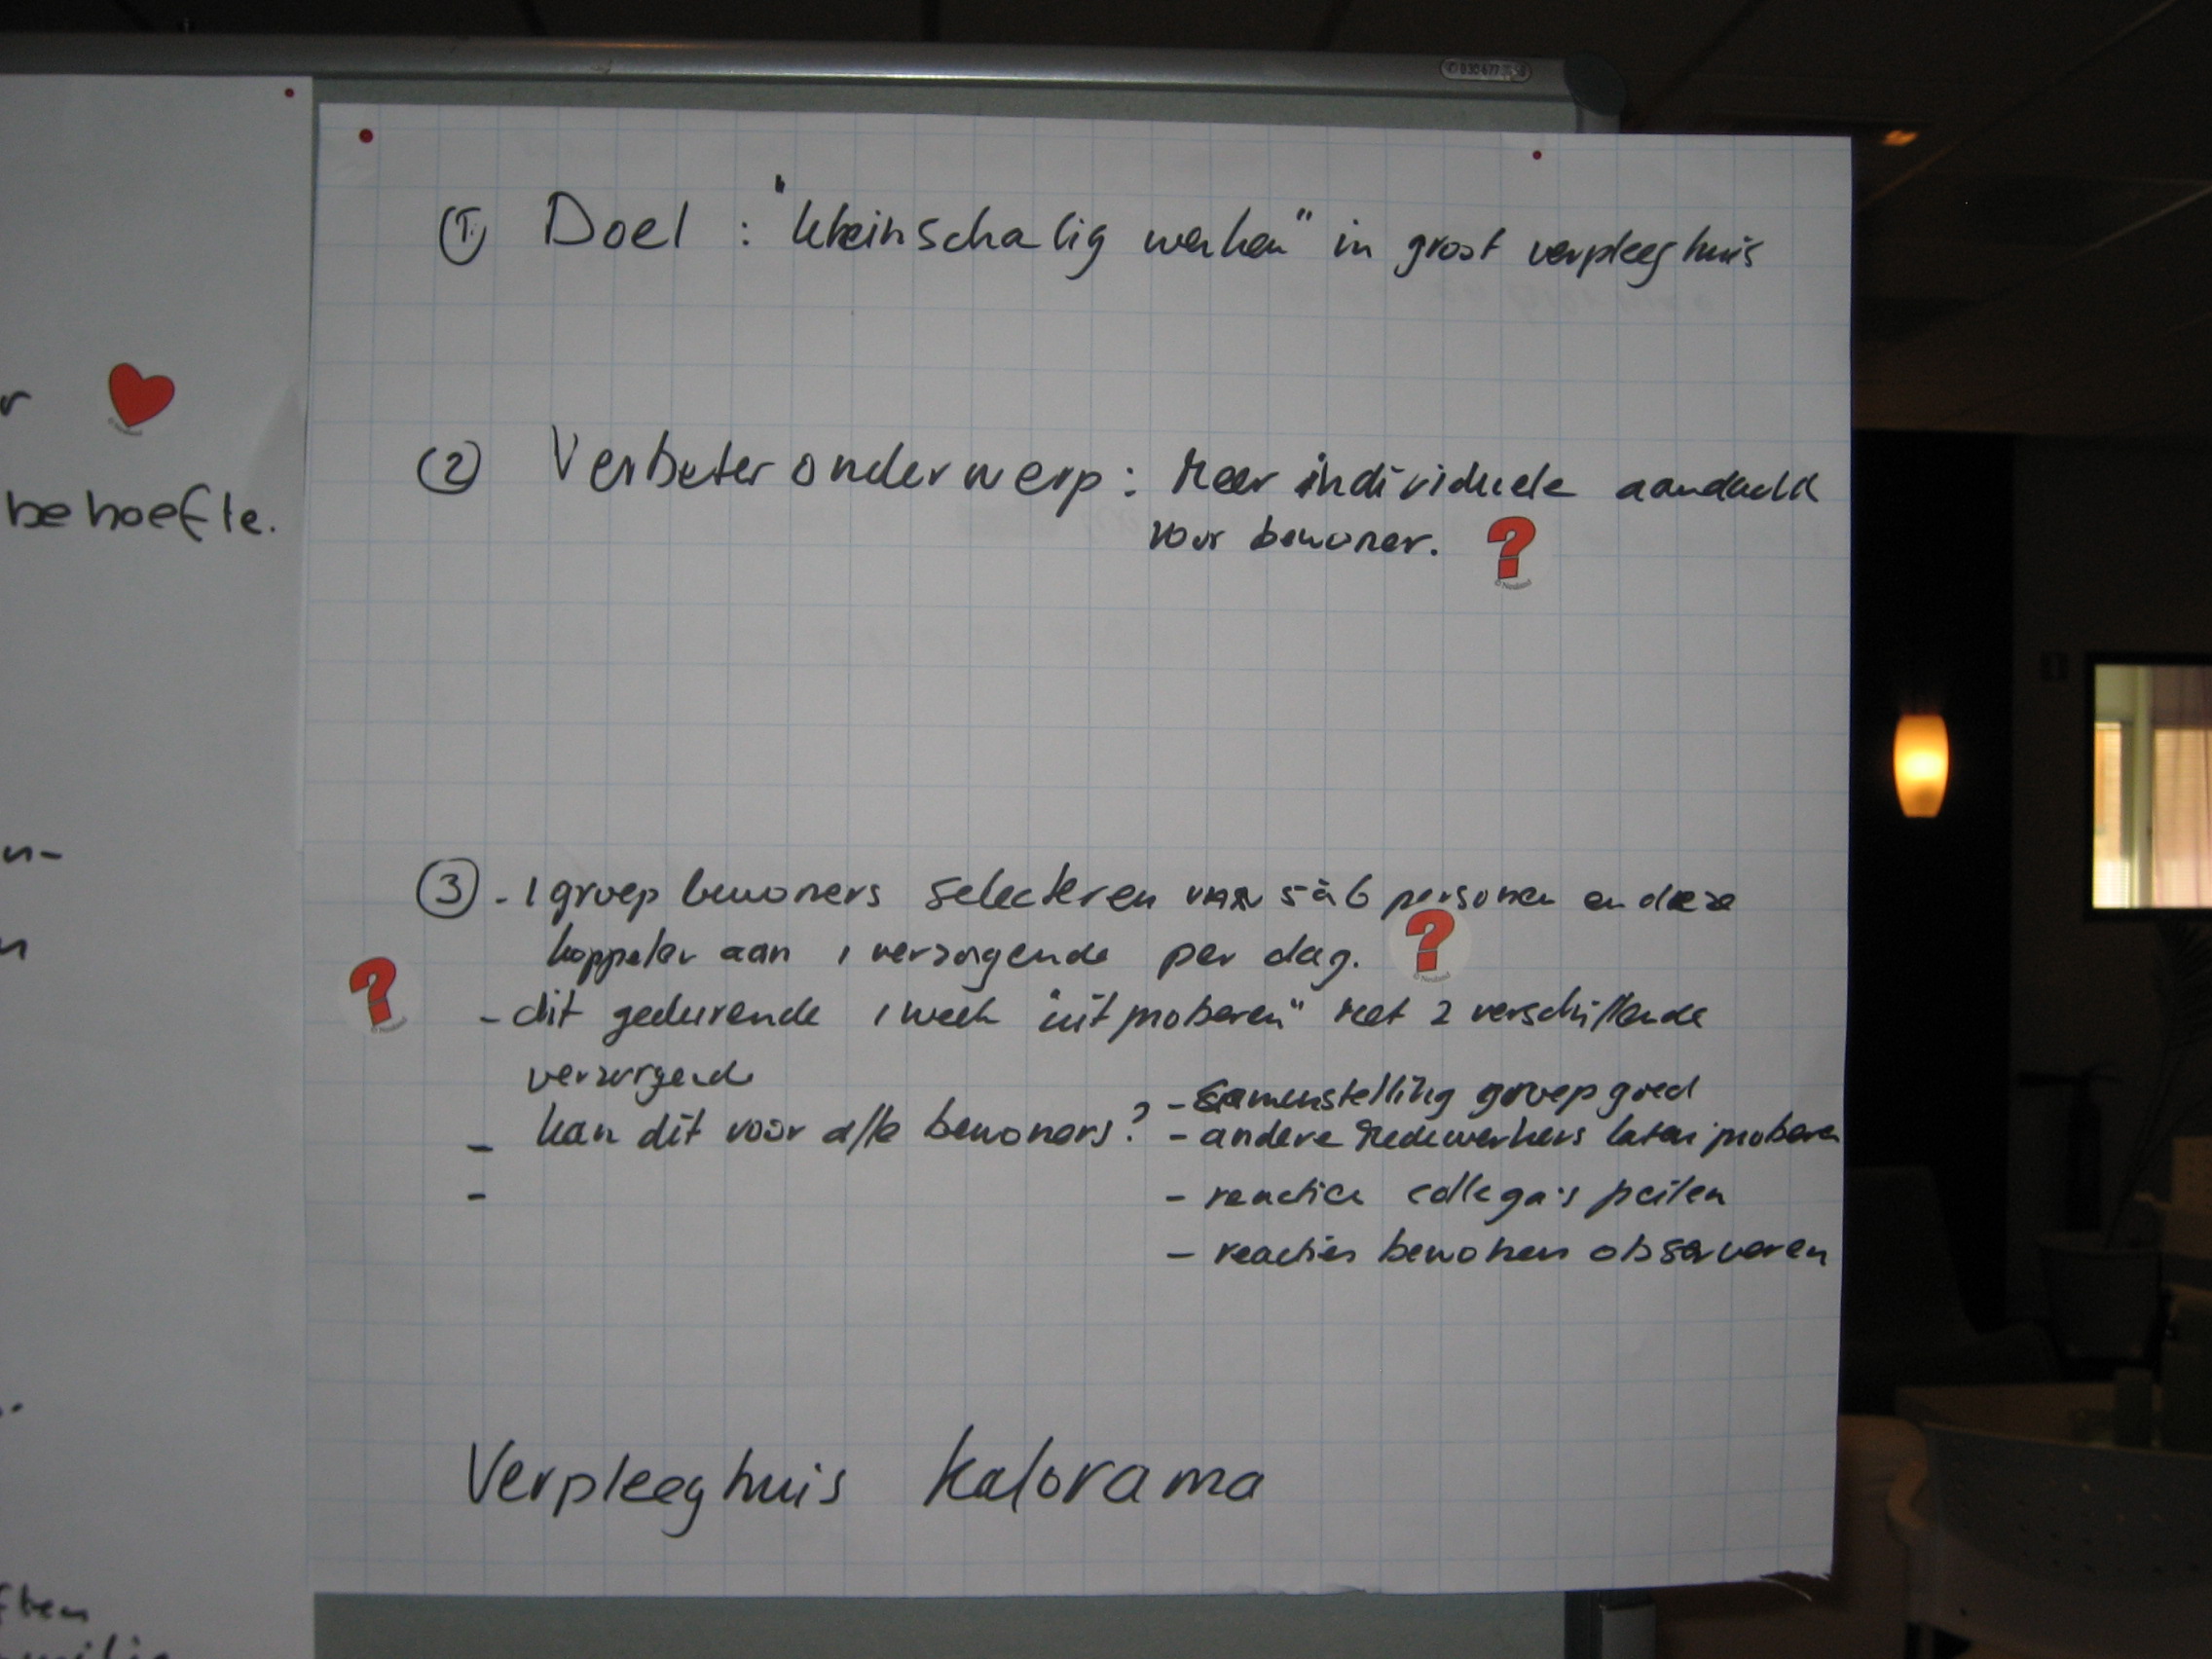 r
behoefte.
n-
n
ften
① Doel : "kleinschalig werken" in groot verpleeghuis
② Verbeteronderwerp : Meer individuele aandacht
voor bewoner. ?
③ - 1 groep bewoners selecteren van 5 à 6 personen en deze
koppelen aan 1 verzorgende per dag. ?
?
- dit gedurende 1 week "uitproberen" met 2 verschillende
verzorgend
- kan dit voor alle bewoners?
-
- Samenstelling groep goed
- andere medewerkers laten proberen
- reactie collega's peilen
- reacties bewoners observeren
Verpleeghuis Kalorama